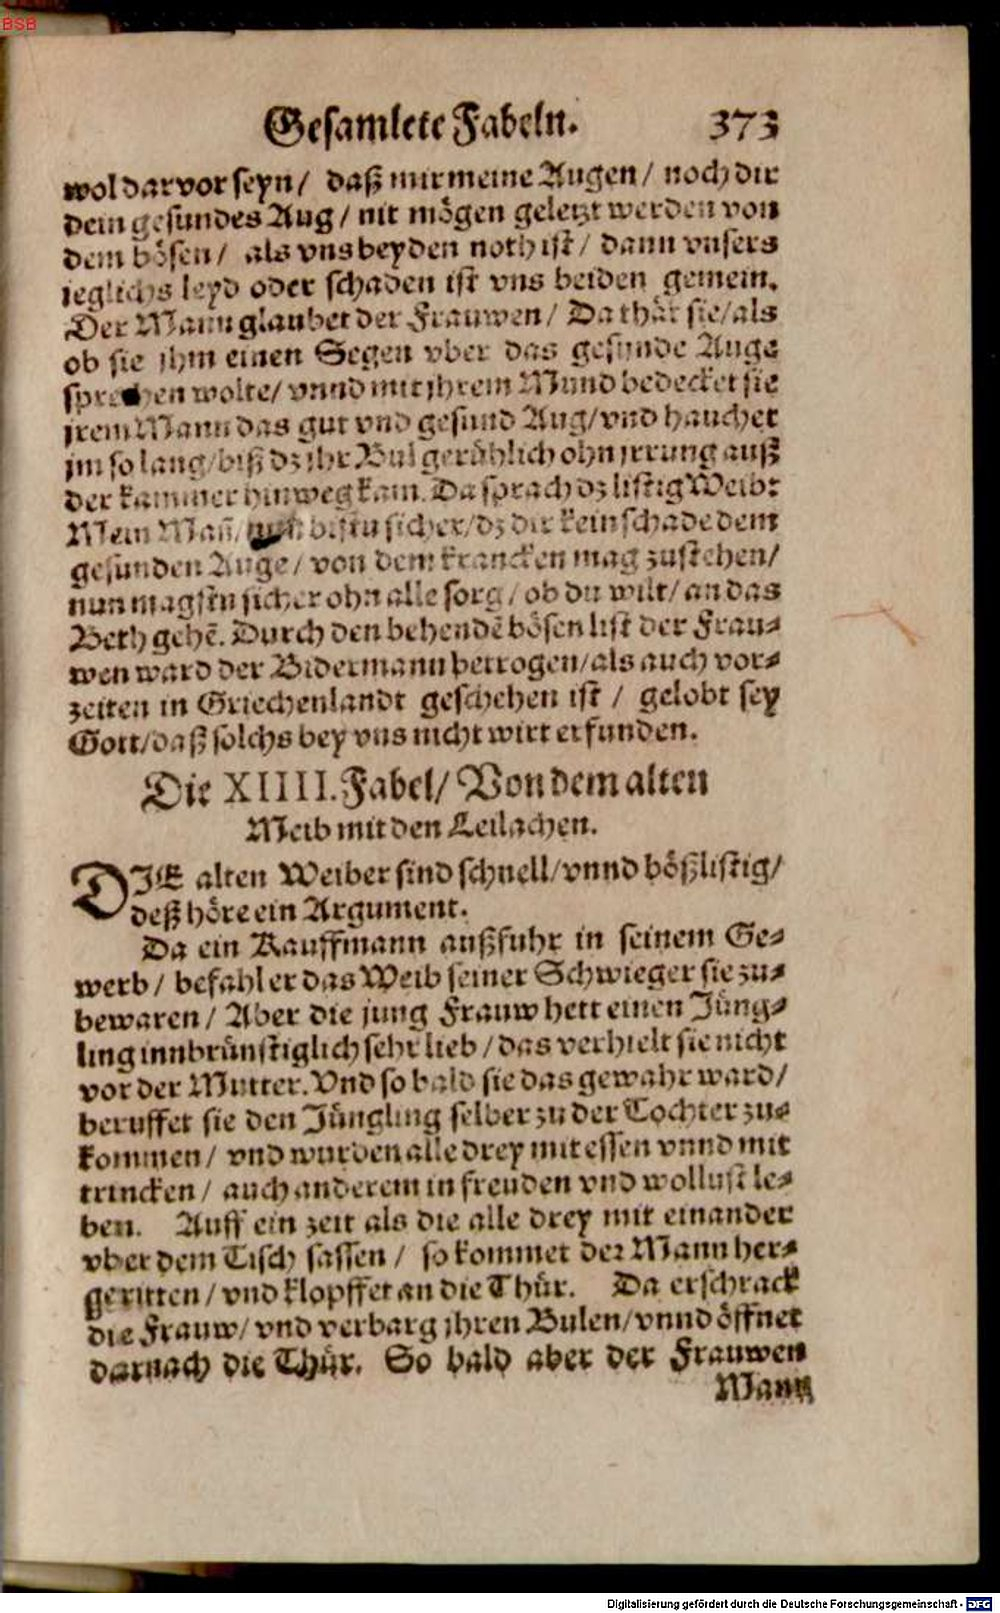 BSB
Gesamlete Fabeln. 373
wol darvor seyn / daß mir meine Augen / noch dir
dein gesundes Aug / nit mögen geletzt werden von
dem bösen / als vns beyden noth ist / dann vnsers
jeglichs leyd oder schaden ist vns beiden gemein.
Der Mann glaubet der Frauwen / Da thät sie / als
ob sie jhm einen Segen vber das gesunde Auge
sprechen wolte / vnnd mit jhrem Mund bedecket sie
jrem Mann das gut vnd gesund Aug / vnd hauchet
jm so lang / biß dz jhr Bul gerühlich ohn jrrung auß
der kammer hinweg kam. Da sprach dz listig Weib:
Mein Mañ / nun bistu sicher / dz dir kein schade dem
gesunden Auge / von dem krancken mag zustehen /
nun magstu sicher ohn alle sorg / ob du wilt / an das
Beth gehẽ. Durch den behendẽ bösen list der Frau⸗
wen ward der Bidermann betrogen / als auch vor⸗
zeiten in Griechenlandt geschehen ist / gelobt sey
Gott / daß solchs bey vns nicht wirt erfunden.
Die XIIII. Fabel / Von dem alten
Weib mit den Leilachen.
DIE alten Weiber sind schnell / vnnd bößlistig /
deß höre ein Argument.
Da ein Kauffmann außfuhr in seinem Ge⸗
werb / befahl er das Weib seiner Schwieger sie zu⸗
bewaren / Aber die jung Frauw hett einen Jüng⸗
ling innbrünstiglich sehr lieb / das verhielt sie nicht
vor der Mutter. Vnd so bald sie das gewahr ward /
beruffet sie den Jüngling selber zu der Tochter zu⸗
kommen / vnd wurden alle drey mit essen vnnd mit
trincken / auch anderem in freuden vnd wollust le⸗
ben. Auff ein zeit als die alle drey mit einander
vber dem Tisch sassen / so kommet der Mann her⸗
geritten / vnd klopffet an die Thür. Da erschrack
die Frauw / vnd verbarg jhren Bulen / vnnd öffnet
darnach die Thür. So bald aber der Frauwen
Mann
Digitalisierung gefördert durch die Deutsche Forschungsgemeinschaft - DFG